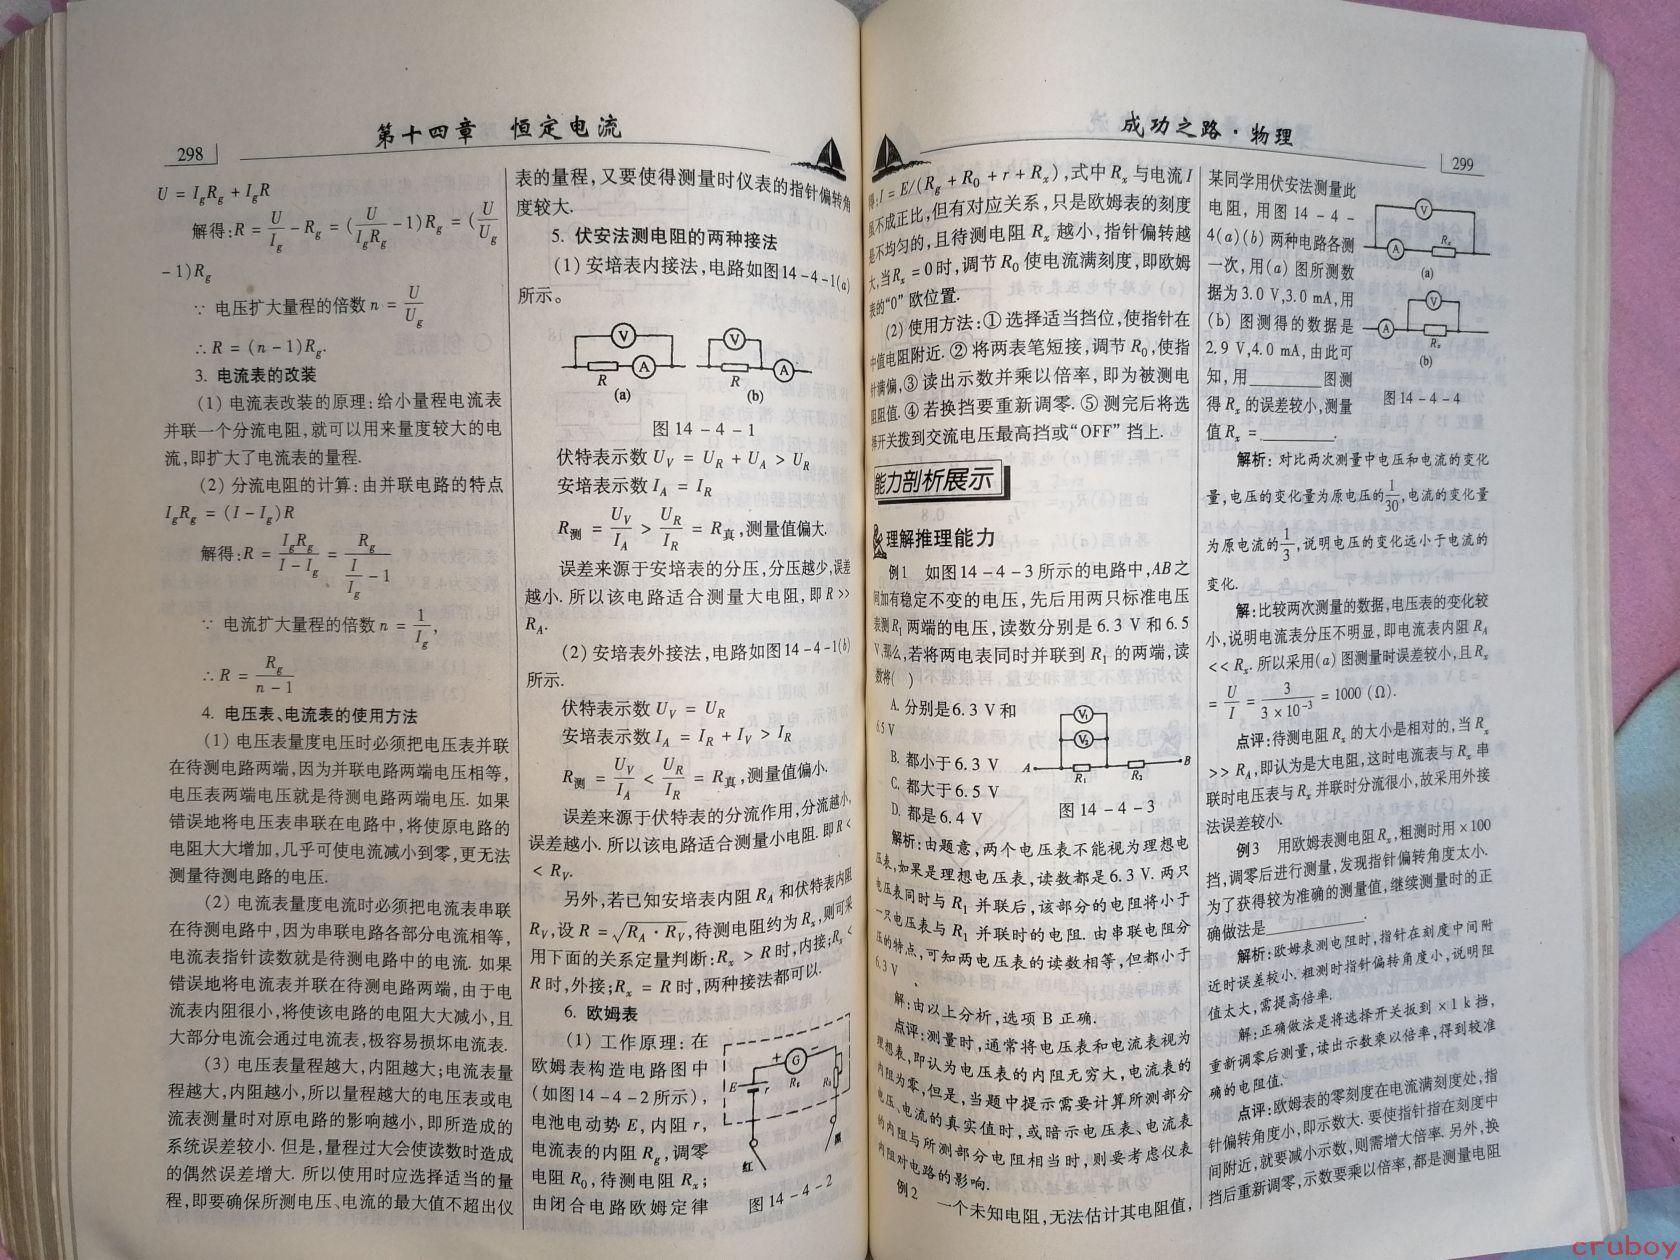 第十四章 恒定电流
298
U = IgRg + IgR
解得:R = U/Ig - Rg = (U/IgRg - 1)Rg = (U/Ug
- 1)Rg
∵ 电压扩大量程的倍数 n = U/Ug
∴ R = (n - 1)Rg.
3. 电流表的改装
(1) 电流表改装的原理:给小量程电流表
并联一个分流电阻,就可以用来量度较大的电
流,即扩大了电流表的量程.
(2) 分流电阻的计算:由并联电路的特点
IgRg = (I - Ig)R
解得:R = IgRg/(I - Ig) = Rg/(I/Ig - 1)
∵ 电流扩大量程的倍数 n = I/Ig,
∴ R = Rg/(n - 1)
4. 电压表、电流表的使用方法
(1) 电压表量度电压时必须把电压表并联
在待测电路两端,因为并联电路两端电压相等,
电压表两端电压就是待测电路两端电压. 如果
错误地将电压表串联在电路中,将使原电路的
电阻大大增加,几乎可使电流减小到零,更无法
测量待测电路的电压.
(2) 电流表量度电流时必须把电流表串联
在待测电路中,因为串联电路各部分电流相等,
电流表指针读数就是待测电路中的电流. 如果
错误地将电流表并联在待测电路两端,由于电
流表内阻很小,将使该电路的电阻大大减小,且
大部分电流会通过电流表,极容易损坏电流表.
(3) 电压表量程越大,内阻越大;电流表量
程越大,内阻越小,所以量程越大的电压表或电
流表测量时对原电路的影响越小,即所造成的
系统误差较小. 但是,量程过大会使读数时造成
的偶然误差增大. 所以使用时应选择适当的量
程,即要确保所测电压、电流的最大值不超出仪
表的量程,又要使得测量时仪表的指针偏转角
度较大.
5. 伏安法测电阻的两种接法
(1) 安培表内接法,电路如图14-4-1(a)
所示。
V V
R A R A
(a) (b)
图 14-4-1
伏特表示数 UV = UR + UA > UR
安培表示数 IA = IR
R测 = UV/IA > UR/IR = R真,测量值偏大.
误差来源于安培表的分压,分压越少,误差
越小. 所以该电路适合测量大电阻,即 R >>
RA.
(2) 安培表外接法,电路如图14-4-1(b)
所示.
伏特表示数 UV = UR
安培表示数 IA = IR + IV > IR
R测 = UV/IA < UR/IR = R真,测量值偏小.
误差来源于伏特表的分流作用,分流越小,
误差越小. 所以该电路适合测量小电阻. 即 R <
< RV.
另外,若已知安培表内阻 RA 和伏特表内阻
RV,设 R = √(RA · RV),待测电阻约为 Rx,则可采
用下面的关系定量判断:Rx > R 时,内接;Rx <
R 时,外接;Rx = R 时,两种接法都可以.
6. 欧姆表
(1) 工作原理:在
欧姆表构造电路图中
(如图14-4-2所示),
电池电动势 E,内阻 r,
电流表的内阻 Rg,调零
电阻 R0,待测电阻 Rx;
由闭合电路欧姆定律
+ G -
E r Rg R0
红 黑
图 14-4-2
成功之路·物理
299
得:I = E/(Rg + R0 + r + Rx),式中 Rx 与电流 I
虽不成正比,但有对应关系,只是欧姆表的刻度
是不均匀的,且待测电阻 Rx 越小,指针偏转越
大,当 Rx = 0 时,调节 R0 使电流满刻度,即欧姆
表的“0”欧位置.
(2) 使用方法:① 选择适当挡位,使指针在
中值电阻附近. ② 将两表笔短接,调节 R0,使指
针满偏,③ 读出示数并乘以倍率,即为被测电
阻阻值. ④ 若换挡要重新调零. ⑤ 测完后将选
择开关拨到交流电压最高挡或“OFF”挡上.
能力剖析展示
理解推理能力
例1 如图14-4-3所示的电路中,AB之
间加有稳定不变的电压,先后用两只标准电压
表测R1两端的电压,读数分别是6.3 V和6.5
V,那么,若将两电表同时并联到 R1 的两端,读
数将( )
A. 分别是6.3 V和
6.5 V
B. 都小于6.3 V
C. 都大于6.5 V
D. 都是6.4 V
V1
V2
A R1 R2 B
图 14-4-3
解析:由题意,两个电压表不能视为理想电
压表,如果是理想电压表,读数都是6.3 V. 两只
电压表同时与 R1 并联后,该部分的电阻将小于
一只电压表与 R1 并联时的电阻. 由串联电阻分
压的特点,可知两电压表的读数相等,但都小于
6.3 V
解:由以上分析,选项 B 正确.
点评:测量时,通常将电压表和电流表视为
理想表,即认为电压表的内阻无穷大,电流表的
内阻为零,但是,当题中提示需要计算所测部分
电压、电流的真实值时,或暗示电压表、电流表
的内阻与所测部分电阻相当时,则要考虑仪表
内阻对电路的影响.
例2 一个未知电阻,无法估计其电阻值,
某同学用伏安法测量此
电阻,用图 14-4-
4(a)(b) 两种电路各测
一次,用(a) 图所测数
据为 3.0 V,3.0 mA,用
(b) 图测得的数据是
2.9 V,4.0 mA,由此可
知,用______图测
得 Rx 的误差较小,测量
值 Rx = ______.
V
A Rx
(a)
V
A Rx
(b)
图 14-4-4
解析:对比两次测量中电压和电流的变化
量,电压的变化量为原电压的1/30,电流的变化量
为原电流的1/3,说明电压的变化远小于电流的
变化.
解:比较两次测量的数据,电压表的变化较
小,说明电流表分压不明显,即电流表内阻 RA
<< Rx. 所以采用(a) 图测量时误差较小,且 Rx
= U/I = 3/(3 × 10⁻³) = 1000 (Ω).
点评:待测电阻 Rx 的大小是相对的,当 Rx
>> RA,即认为是大电阻,这时电流表与 Rx 串
联时电压表与 Rx 并联时分流很小,故采用外接
法误差较小.
例3 用欧姆表测电阻 Rx,粗测时用 ×100
挡,调零后进行测量,发现指针偏转角度太小.
为了获得较为准确的测量值,继续测量时的正
确做法是______.
解析:欧姆表测电阻时,指针在刻度中间附
近时误差较小. 粗测时指针偏转角度小,说明阻
值太大,需提高倍率.
解:正确做法是将选择开关扳到 ×1 k 挡,
重新调零后测量,读出示数乘以倍率,得到较准
确的电阻值.
点评:欧姆表的零刻度在电流满刻度处,指
针偏转角度小,即示数大. 要使指针指在刻度中
间附近,就要减小示数,则需增大倍率. 另外,换
挡后重新调零,示数要乘以倍率,都是测量电阻
cruboy